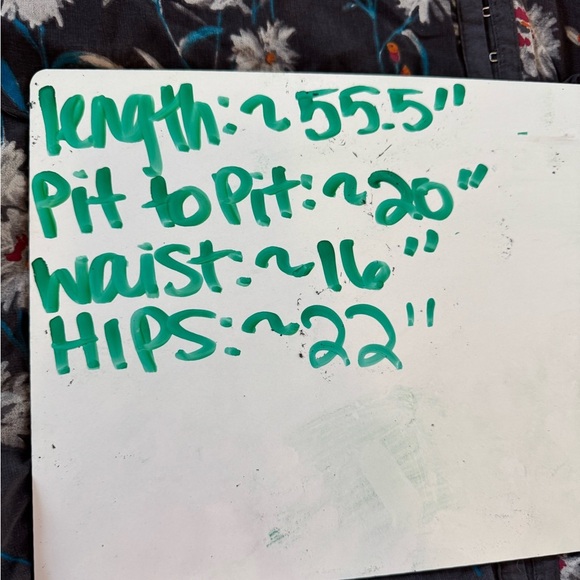 length: ~55.5"
Pit to Pit: ~20"
waist: ~16"
HIPS: ~22"